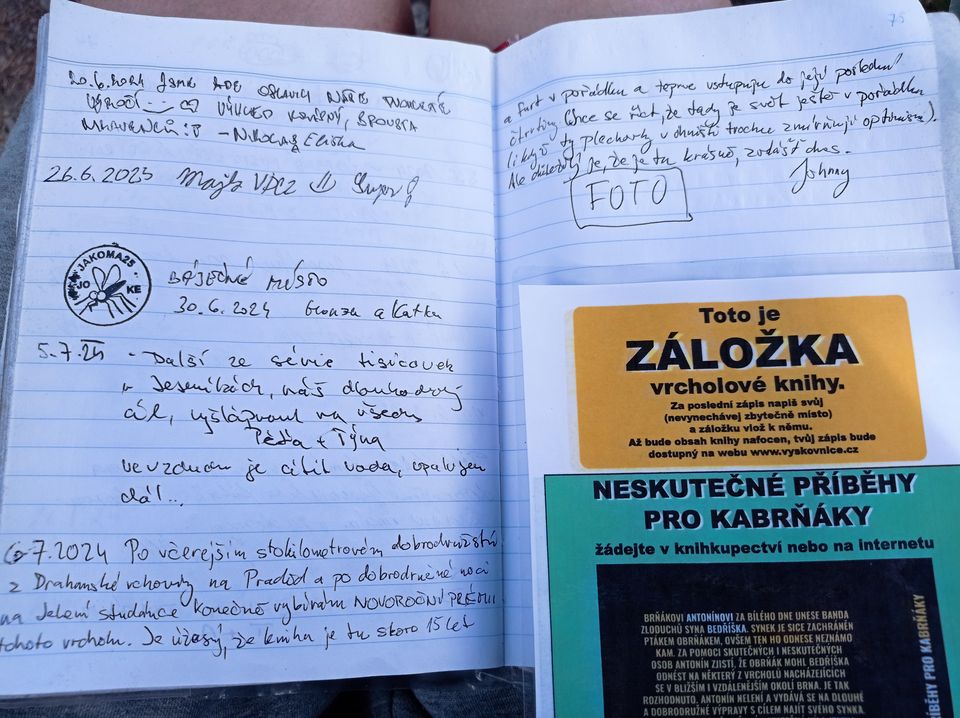 20.6.2024 JSME ZDE OSLAVILI NAŠE
VÝROČÍ VÝHLED KRÁSNÝ, SPOUSTA
MRAVENCŮ - NIKOLAS ELIŠKA
26.6.2023 Super
JAKOMA25
JO KE
BÁJEČNÉ MÍSTO
30.6.2024 Honza a Katka
5.7.24 - Další ze série tisícovek
v Jeseníkách, náš dlouhodobý
cíl, vyšlápnout na všechny
Péťa + Týna
ve vzduchu je cítit voda,
dál..
6.7.2024 Po včerejším stokilometrovém dobrodružství
z Drahanské vrchoviny na Praděd a po dobrodružné noci
na Jelení studánce konečně vybírám NOVOROČNÍ PRÉMII
tohoto vrcholu. Je úžasný, že kniha je tu skoro 15 let
75
a furt v pořádku a teprve vstupuje do její poslední
čtvrtiny (chce se říct, že tady je svět ještě v pořádku
i když ty plechovky v ohništi trochu zmírňují optimismus).
Ale důležitý je, že je tu krásně, zvlášť dnes.
FOTO
Johnny
Toto je
ZÁLOŽKA
vrcholové knihy.
Za poslední zápis napiš svůj
(nevynechávej zbytečně místo)
a záložku vlož k němu.
Až bude obsah knihy nafocen, tvůj zápis bude
dostupný na webu www.vyskovnice.cz
NESKUTEČNÉ PŘÍBĚHY
PRO KABRŇÁKY
žádejte v knihkupectví nebo na internetu
BRŇÁKOVI ANTONÍNOVI ZA BÍLÉHO DNE UNESE BANDA
ZLODUCHŮ SYNA BEDŘÍŠKA. SYNEK JE SICE ZACHRÁNĚN
PTÁKEM OBRŇÁKEM, OVŠEM TEN HO ODNESE NEZNÁMO
KAM. ZA POMOCI SKUTEČNÝCH I NESKUTEČNÝCH
OSOB ANTONÍN ZJISTÍ, ŽE OBRŇÁK MOHL BEDŘÍŠKA
ODNÉST NA NĚKTERÝ Z VRCHOLŮ NACHÁZEJÍCÍCH
SE V BLIŽŠÍM I VZDÁLENĚJŠÍM OKOLÍ BRNA. JE TAK
ROZHODNUTO. ANTONÍN NELENÍ A VYDÁVÁ SE NA DLOUHÉ
A DOBRODRUŽNÉ VÝPRAVY S CÍLEM NAJÍT SVÉHO SYNKA.
PŘÍBĚHY PRO KABRŇÁKY